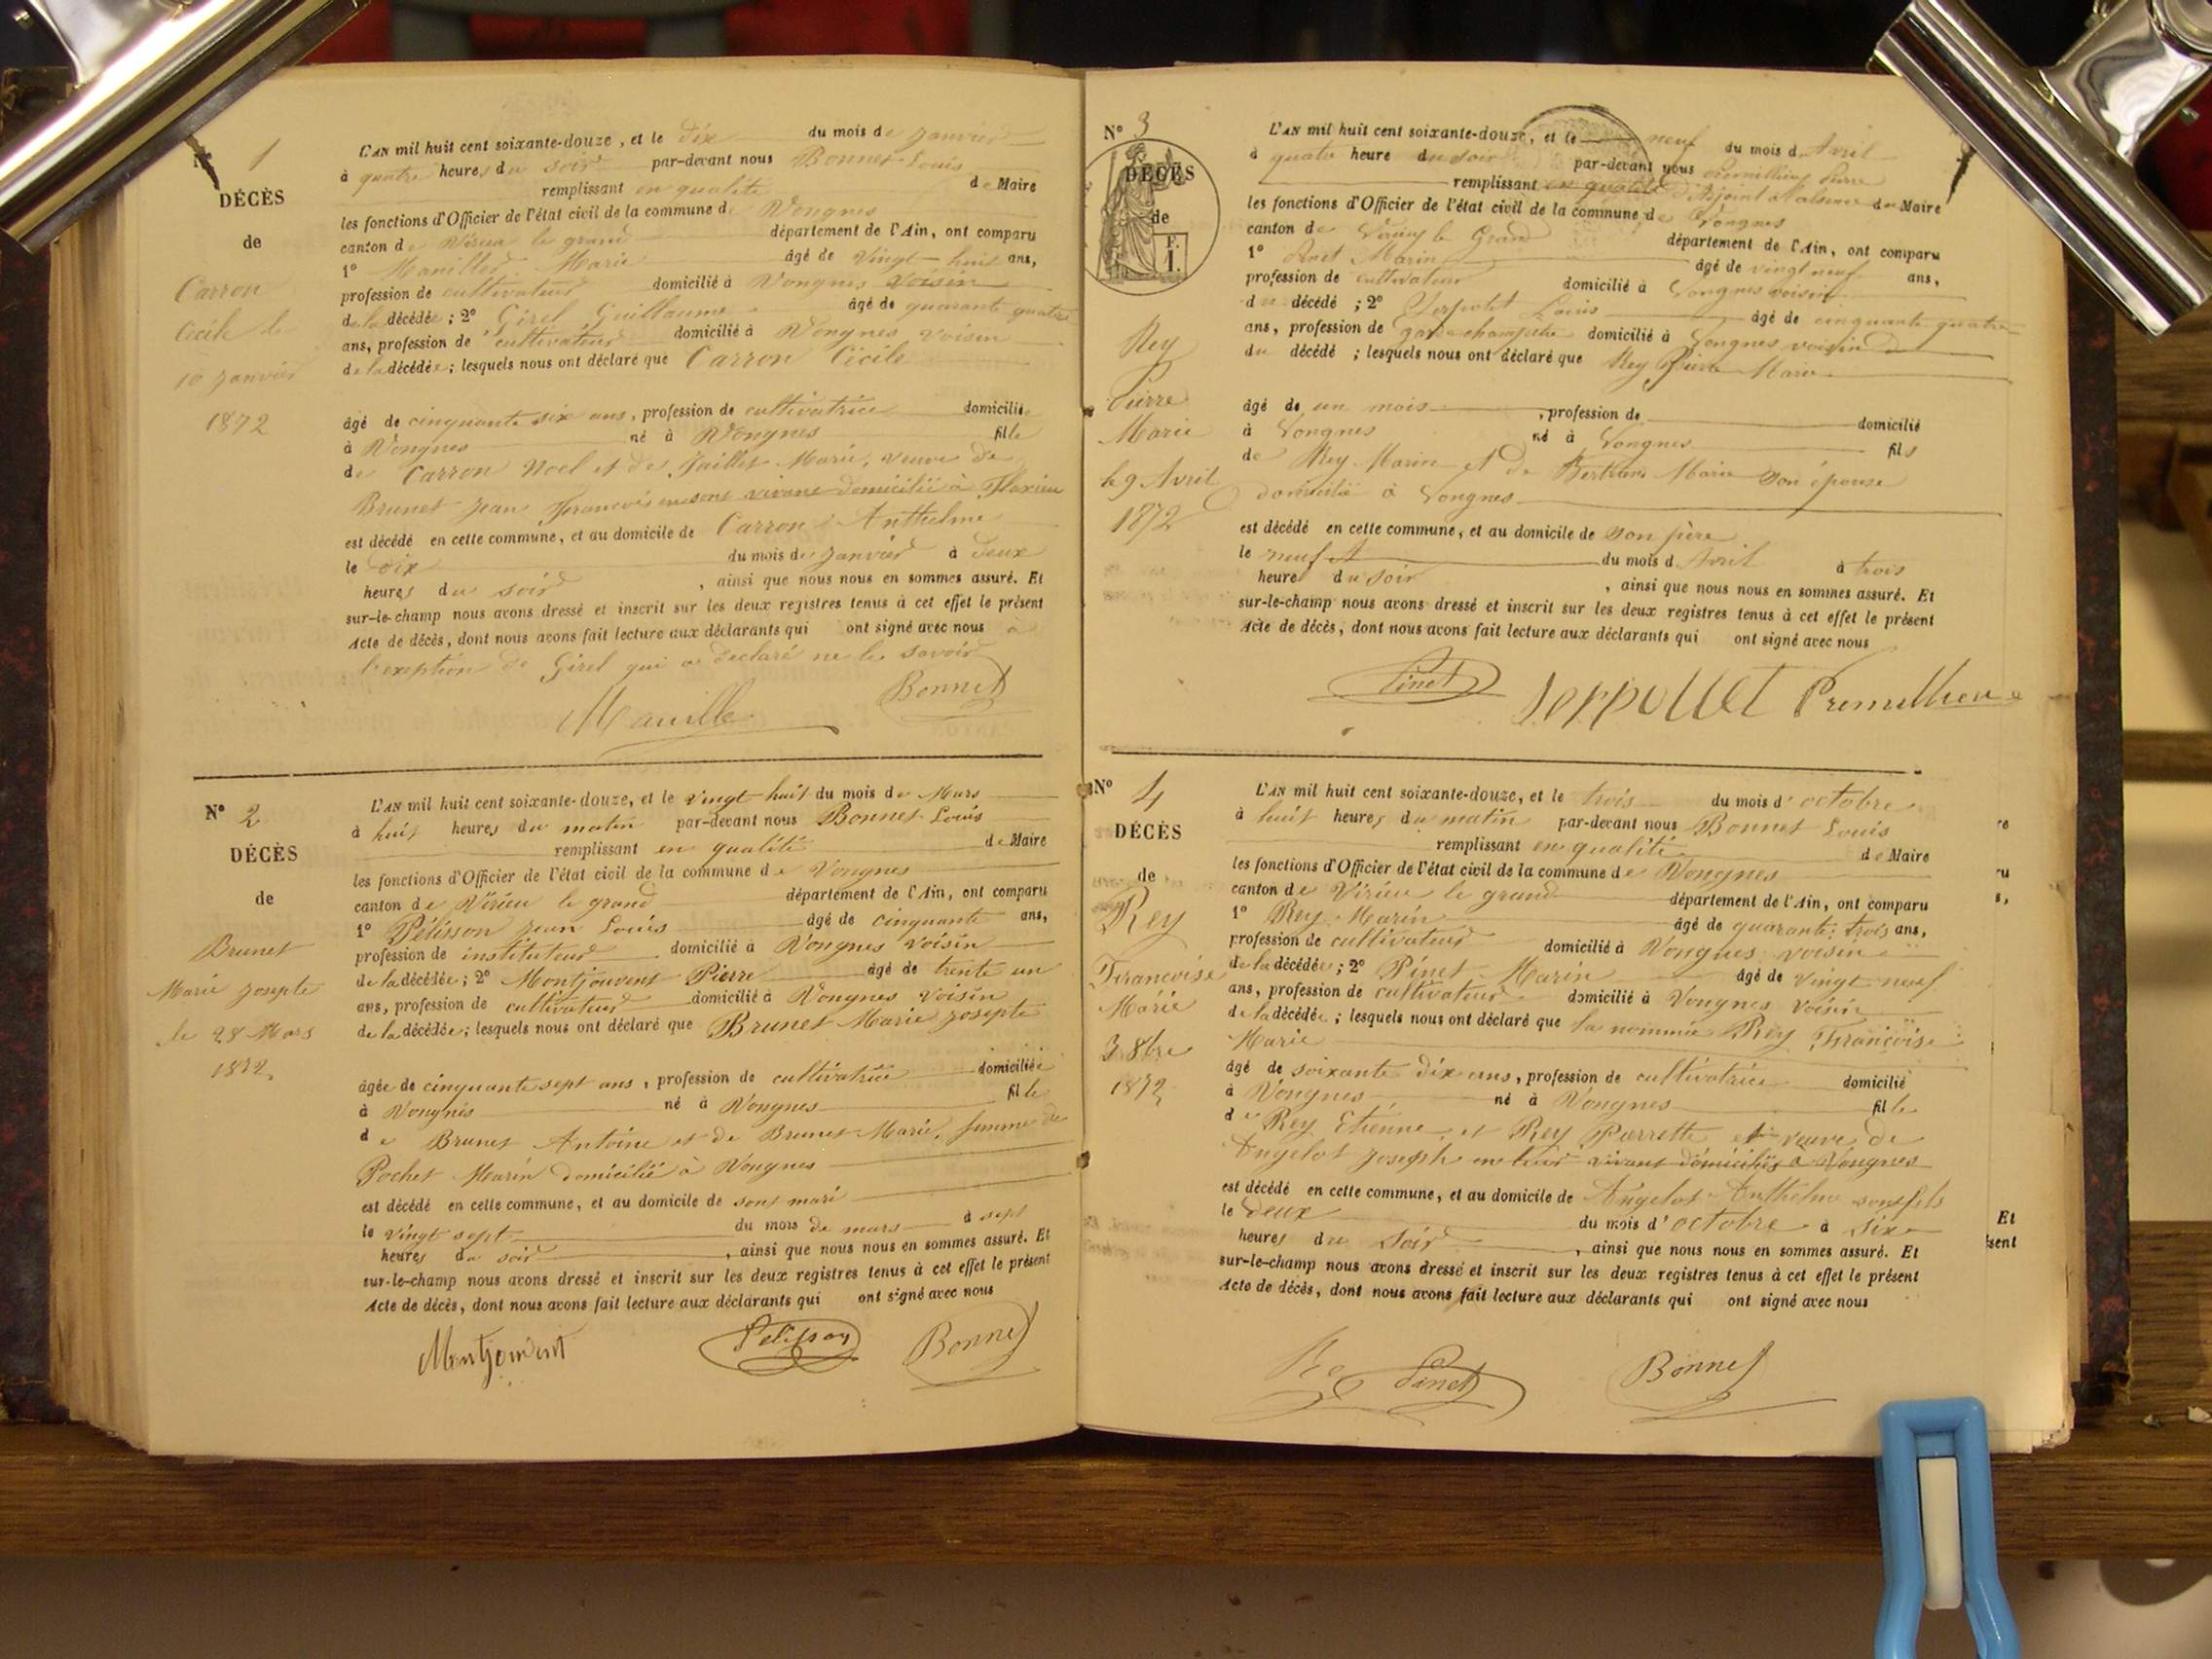 N° 1
DÉCÈS
de
Carron
Cécile le
10 janvier
1872
L'AN mil huit cent soixante-douze, et le dix du mois de janvier
à quatre heures du soir par-devant nous Bonnet Louis
remplissant en qualité de Maire
les fonctions d'Officier de l'état civil de la commune de Vongnes
canton de Virieu le grand département de l'Ain, ont comparu
1° Manillet Marie âgé de vingt-huit ans,
profession de cultivateur domicilié à Vongnes voisin
de la décédée; 2° Girel Guillaume âgé de quarante quatre
ans, profession de cultivateur domicilié à Vongnes voisin
de la décédée; lesquels nous ont déclaré que Carron Cécile
âgé de cinquante six ans, profession de cultivatrice domiciliée
à Vongnes né à Vongnes fille
de Carron Noel et de Jaillet Marie, veuve de
Brunet jean françois en sont vivant domicilié à Flaxieu
est décédé en cette commune, et au domicile de Carron Anthelme
le dix du mois de janvier à deux
heures du soir, ainsi que nous nous en sommes assuré. Et
sur-le-champ nous avons dressé et inscrit sur les deux registres tenus à cet effet le présent
Acte de décès, dont nous avons fait lecture aux déclarants qui ont signé avec nous à
l'exeption de Girel qui a déclaré ne le savoir
Bonnet
N° 2
DÉCÈS
de
Brunet
Marie josepte
le 28 Mars
1872
L'AN mil huit cent soixante-douze, et le vingt huit du mois de Mars
à huit heures du matin par-devant nous Bonnet Louis
remplissant en qualité de Maire
les fonctions d'Officier de l'état civil de la commune de Vongnes
canton de Virieu le grand département de l'Ain, ont comparu
1° Pélisson jean Louis âgé de cinquante ans,
profession de instituteur domicilié à Vongnes voisin
de la décédée; 2° Montjouvent Pierre âgé de trente un
ans, profession de cultivateur domicilié à Vongnes voisin
de la décédée; lesquels nous ont déclaré que Brunet Marie josepte
âgée de cinquante sept ans, profession de cultivatrice domiciliée
à Vongnes né à Vongnes fille
de Brunet Antoine et de Brunet Marie, femme de
Pochet Marin domicilié à Vongnes
est décédé en cette commune, et au domicile de sont mari
le vingt sept du mois de mars à sept
heures du soir, ainsi que nous nous en sommes assuré. Et
sur-le-champ nous avons dressé et inscrit sur les deux registres tenus à cet effet le présent
Acte de décès, dont nous avons fait lecture aux déclarants qui ont signé avec nous
Montjouvent Pelisson Bonnet
N° 3
DÉCÈS
de
F.
1.
Rey
Pierre
Marie
le 9 Avril
1872
L'AN mil huit cent soixante-douze, et le neuf du mois d'Avril
à quatre heure du soir par-devant nous Premillieu Pierre
remplissant en qualité d'Adjoint du Maire
les fonctions d'Officier de l'état civil de la commune de Vongnes
canton de Virieu le Grand département de l'Ain, ont comparu
1° Pinet Marin âgé de vingt neuf ans,
profession de cultivateur domicilié à Vongnes voisin
du décédé; 2° Serpolet Louis âgé de cinquante quatre
ans, profession de garde champetre domicilié à Vongnes voisin
du décédé; lesquels nous ont déclaré que Rey Pierre Marie
âgé de un mois, profession de domicilié
à Vongnes né à Vongnes fils
de Rey Marin et de Bertrand Marie son épouse
domicilié à Vongnes
est décédé en cette commune, et au domicile de son père
le neuf du mois d'Avril à trois
heures du soir, ainsi que nous nous en sommes assuré. Et
sur-le-champ nous avons dressé et inscrit sur les deux registres tenus à cet effet le présent
Acte de décès, dont nous avons fait lecture aux déclarants qui ont signé avec nous
Pinet
N° 4
DÉCÈS
de
Rey
Francoise
Marie
3 8bre
1872
L'AN mil huit cent soixante-douze, et le trois du mois d'octobre
à huit heures du matin par-devant nous Bonnet Louis
remplissant en qualité de Maire
les fonctions d'Officier de l'état civil de la commune de Vongnes
canton de Virieu le grand département de l'Ain, ont comparu
1° Rey Marin âgé de quarante trois ans,
profession de cultivateur domicilié à Vongnes voisin
de la décédée; 2° Pinet Marin âgé de vingt neuf
ans, profession de cultivateur domicilié à Vongnes voisin
de la décédée; lesquels nous ont déclaré que la nommée Rey Francoise
Marie
âgé de soixante dix ans, profession de cultivatrice domicilié
à Vongnes né à Vongnes fille
de Rey Etienne et Rey Pierrette et veuve de
Angelot joseph en leur vivant domiciliés à Vongnes
est décédé en cette commune, et au domicile de Angelot Anthelme sont fils
le deux du mois d'octobre à six
heures du soir, ainsi que nous nous en sommes assuré. Et
sur-le-champ nous avons dressé et inscrit sur les deux registres tenus à cet effet le présent
Acte de décès, dont nous avons fait lecture aux déclarants qui ont signé avec nous
Rey Pinet Bonnet